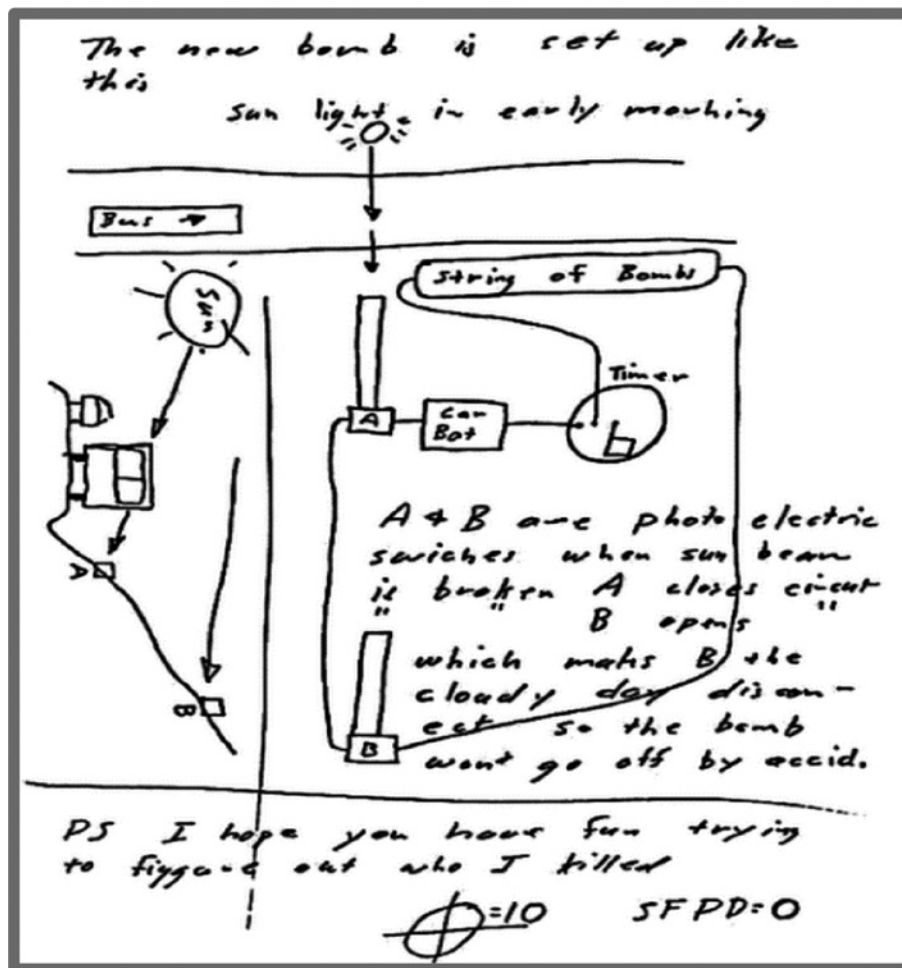 The new bomb is set up like
this
sun light in early morning
Bus →
Sun
String of Bombs
Timer
A
Car
Bat
A
B
A & B are photo electric
swiches when sun beam
is broken A closes circut
" " B opens "
which maks B the
cloudy day discon-
ect so the bomb
wont go off by accid.
B
PS I hope you have fun trying
to figgure out who I killed
=10 SFPD=0